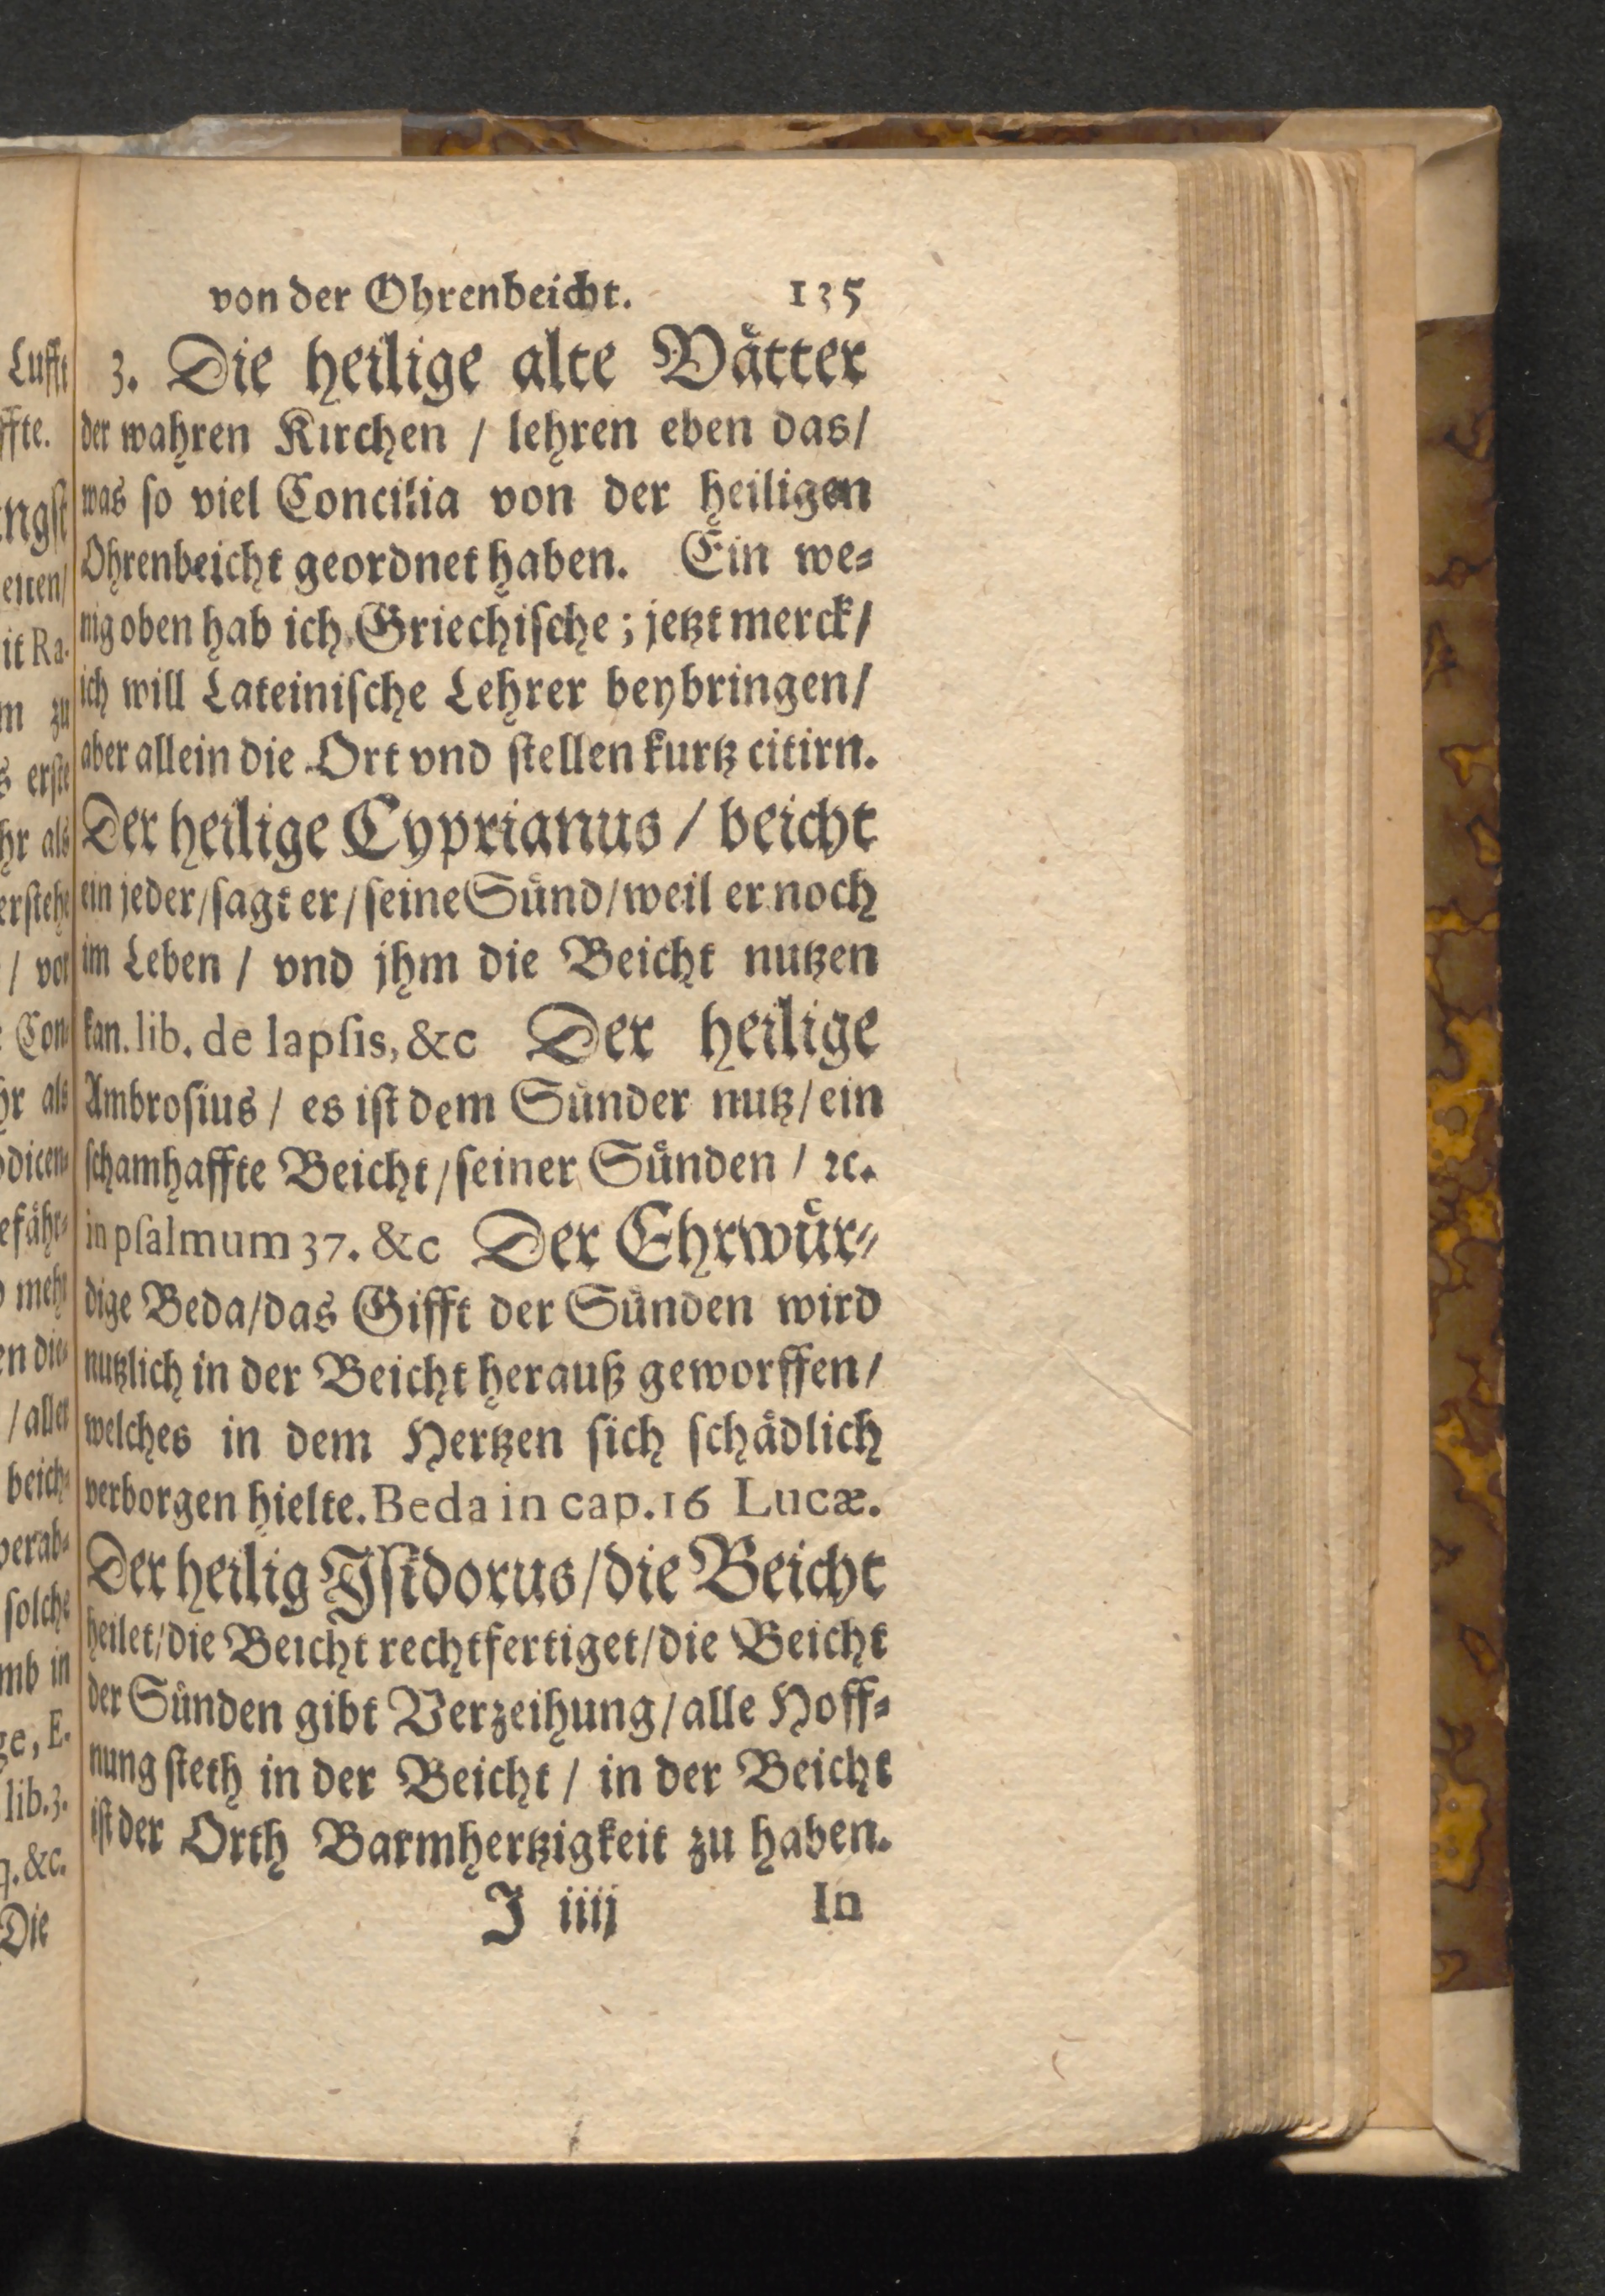 von der Ohrenbeicht. 135
3. Die heilige alte Vätter
der wahren Kirchen / lehren eben das/
was ſo viel Concilia von der heiligen
Ohrenbeicht geordnet haben. Ein we⸗
nig oben hab ich Griechiſche; jetzt merck/
ich will Lateiniſche Lehrer beybringen/
aber allein die Ort vnd ſtellen kurtz citirn.
Der heilige Cyprianus / beicht
ein jeder/ſagt er/ſeine Sünd/weil er noch
im Leben / vnd jhm die Beicht nutzen
kan. lib. de lapſis, &c Der heilige
Ambroſius / es iſt dem Sünder nutz/ein
ſchamhaffte Beicht/ſeiner Sünden / ꝛc.
in pſalmum 37. &c Der Ehrwür⸗
dige Beda/das Gifft der Sünden wird
nutzlich in der Beicht herauß geworffen/
welches in dem Hertzen ſich ſchädlich
verborgen hielte. Beda in cap. 16 Lucæ.
Der heilig Iſidorus/die Beicht
heilet/die Beicht rechtfertiget/die Beicht
der Sünden gibt Verzeihung/alle Hoff⸗
nung ſteth in der Beicht / in der Beicht
iſt der Orth Barmhertzigkeit zu haben.
I iiij In
Lufft
ffte.
it Ra-
m zu
s erſte
hr als
/ vor
Con⸗
hr als
mehr
/ aller
beich⸗
ſolche
ge, E.
lib. 3.
q. &c.
Die